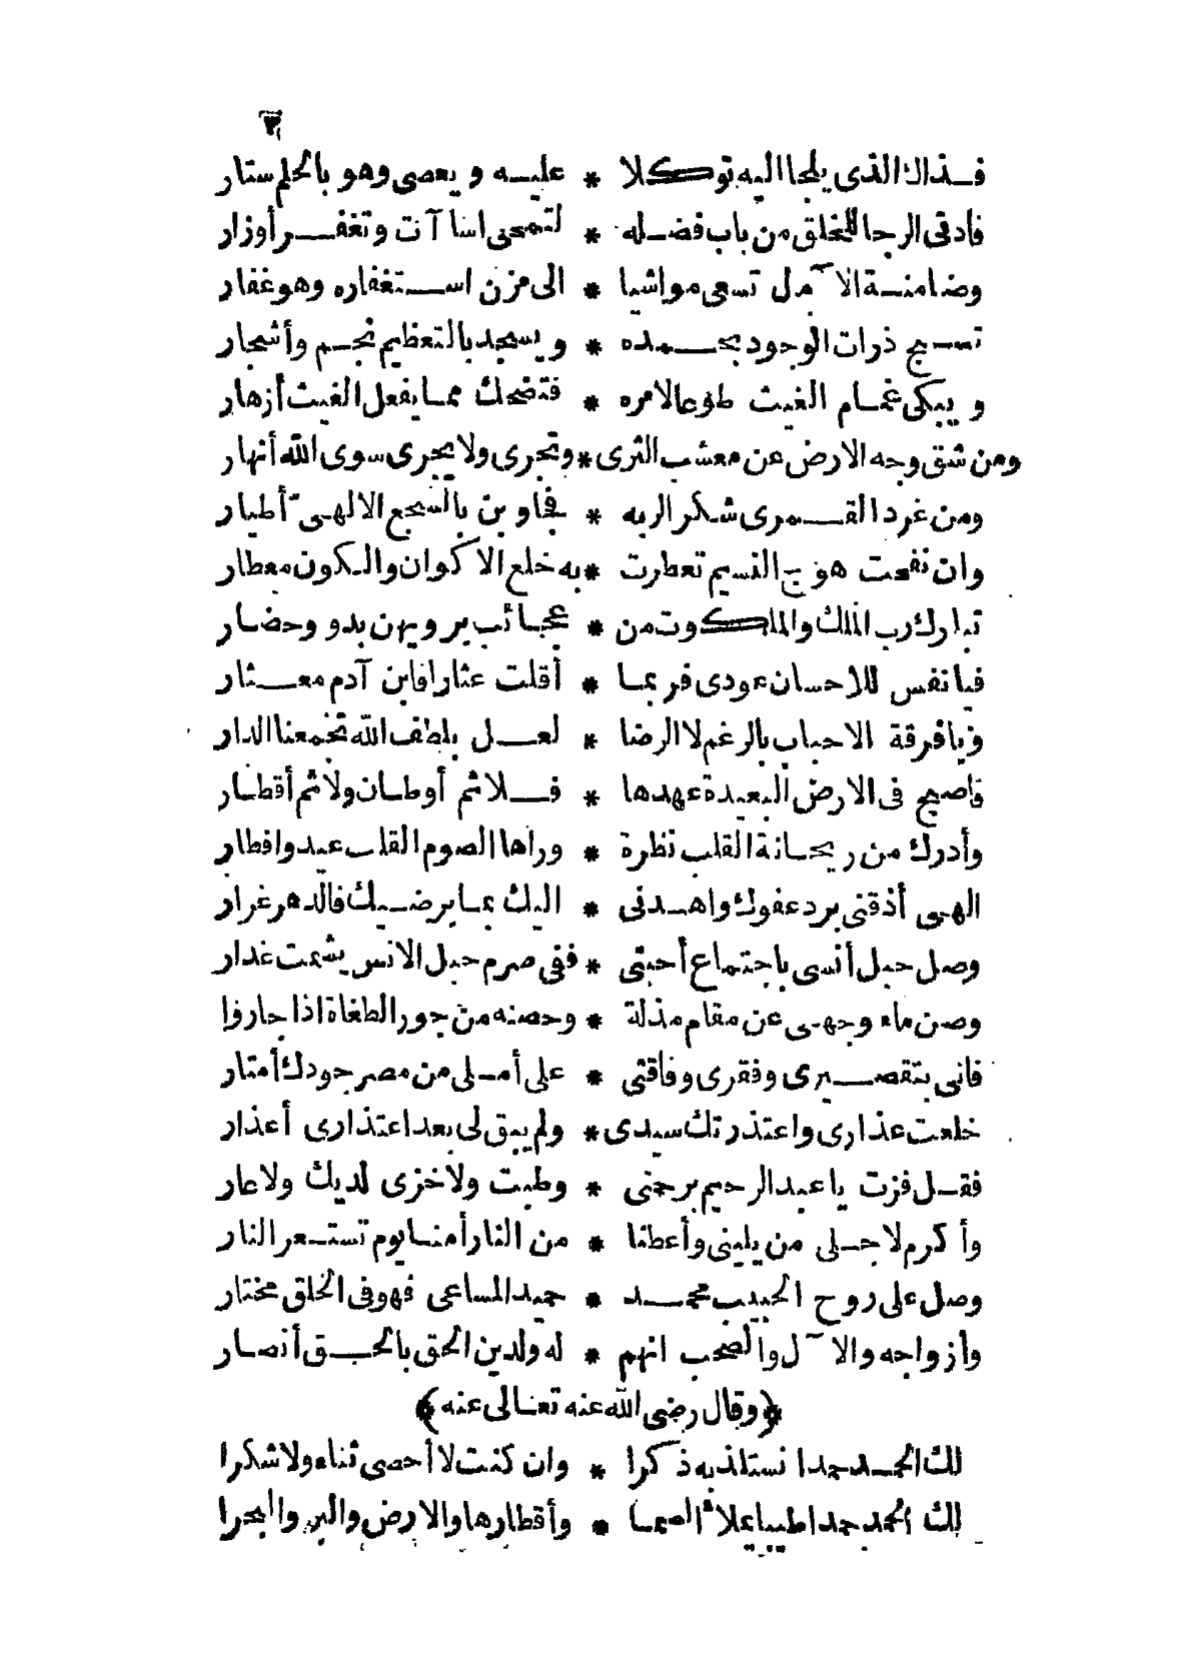 ٣
فـذاك الذى يلجا اليه توكلا * عليه ويعصى وهو بالحلم ستار
فادقى الرجا للخلق من باب فضله * لتمحى اساآت وتغفر أوزار
وضامنة الآمال تسعى مواشيا * الى مزن استغفاره وهو غفار
تسبح ذرات الوجود بحمده * ويسجد بالتعظيم نجم وأشجار
ويبكى غمام الغيث طوعا لامره * فتضحك مما يفعل الغيث أزهار
ومن شق وجه الارض عن معشب الثرى * وتجرى ولا يجرى سوى الله أنهار
ومن غرد القمرى شكرا لربه * فجاوبن بالسجع الالهىّ أطيار
وان نفحت هوج النسيم تعطرت * به خلع الاكوان والكون معطار
تبارك رب الملك والملكوت من * عجائب يرويهن بدو وحضار
فيا نفس للاحسان عودى فربما * أقلت عثارا فابن آدم معثار
ويا فرقة الاحباب بالرغم لا الرضا * لعل بلطف الله تجمعنا الدار
فاصبح فى الارض البعيدة عهدها * فلا ثم أوطان ولا ثم أقطار
وأدرك من ريحانة القلب نظرة * وراها الصوم القلب عيد وافطار
الهى أذقنى برد عفوك واهدنى * اليك بما يرضيك فالدهر غرار
وصل حبل أنسى باجتماع أحبتى * ففى صرم حبل الانس يشمت غدار
وصن ماء وجهى عن مقام مذلة * وحصنه من جور الطغاة اذا جاروا
فانى بتقصيرى وفقرى وفاقتى * على أملى من مصر جودك أمتار
خلعت عذارى واعتذرتك سيدى * ولم يبق لى بعد اعتذارى أعذار
فقل فزت يا عبد الرحيم برحمتى * وطبت ولا خزى لديك ولا عار
وأكرم لاجلى من يلينى وأعطنا * من النار أمنا يوم تستعر النار
وصل على روح الحبيب محمد * حميد المساعى فهو فى الخلق مختار
وأزواجه والآل والصحب انهم * له ولدين الحق بالحق أنصار
﴿وقال رضى الله عنه تعالى عنه﴾
لك الحمد حمدا نستلذ به ذكرا * وان كنت لا أحصى ثناء ولا شكرا
لك الحمد حمدا طيبا يملأ السما * وأقطارها والارض والبر والبحرا